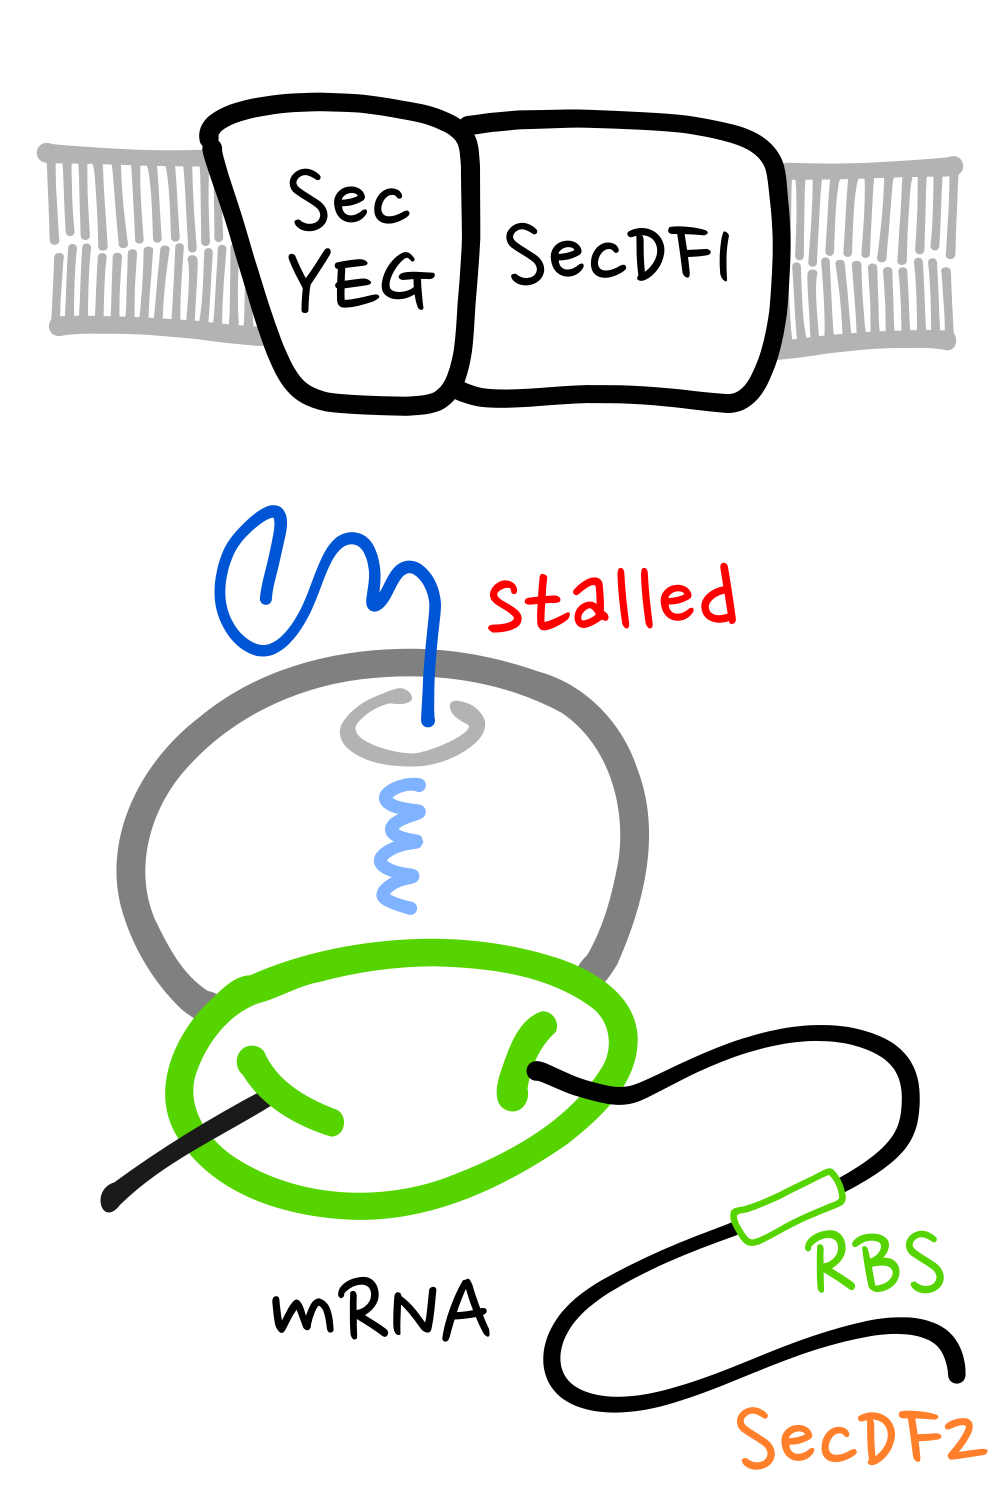 Sec
YEG
SecDF1
stalled
RBS
mRNA
SecDF2